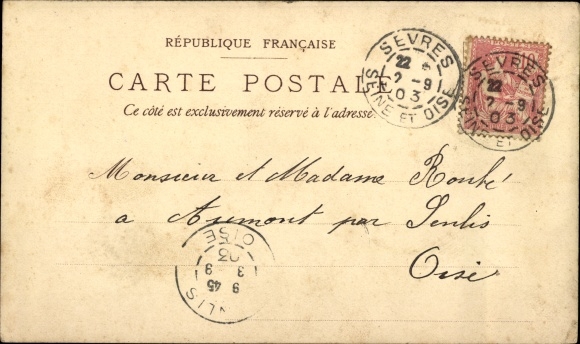 RÉPUBLIQUE FRANÇAISE
CARTE POSTALE
Ce côté est exclusivement réservé à l'adresse.
SEVRES
22
2 - 9
03
SEINE ET OISE
SEVRES
22
2 - 9
03
SEINE ET OISE
Monsieur et Madame Roubé
a Aumont par Senlis
Oise
NLIS
9 45
3 9
03
OISE